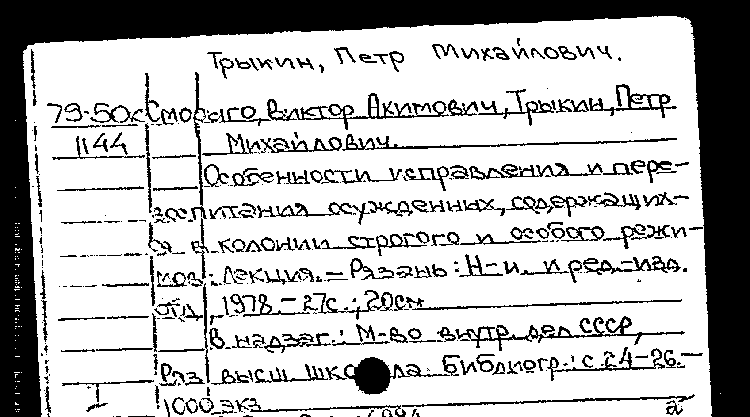 Трыкин, Петр Михайлович.
79-50с Сморыго, Виктор Акимович, Трыкин, Петр
1144 Михайлович.
Особенности исправления и пере-
воспитания осужденных, содержащих-
ся в колонии строгого и особого режи-
мов: Лекция. – Рязань: Н-и. и ред.-изд.
отд, 1978. – 27с.; 20см
В надзаг.: М-во внутр. дел СССР,
Ряз высш. школа. Библиогр.: с. 24-26. –
I 1000 экз